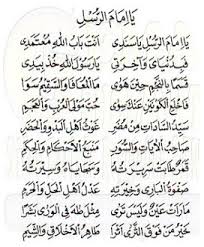 يَا إِمَامَ الرُّسْلِ
يَا إِمَامَ الرُّسْلِ يَا سَنَدِي أَنْتَ بَابُ اللهِ مُعْتَمَدِي
فَبِدُنْيَايَ وَآخِرَتِي يَا رَسُولَ اللهِ خُذْ بِيَدِي
قَسَمًا بِالنَّجْمِ حِينَ هَوَى مَا الْمُعَافَى وَالسَّقِيمُ سَوَا
فَاخْلَعِ الْكَوْنَيْنِ عَنْكَ سِوَى حُبِّ مَوْلَى الْعُرْبِ وَالْعَجَمِ
سَيِّدُ السَّادَاتِ مِنْ مُضَرٍ غَوْثُ أَهْلِ الْبَدْوِ وَالْحَضَرِ
صَاحِبُ الْآيَاتِ وَالسُّوَرِ مَنْبَعُ الْأَحْكَامِ وَالْحِكَمِ
قَمَرٌ طَابَتْ سَرِيرَتُهُ وَسَجَايَاهُ وَسِيرَتُهُ
صَفْوَةُ الْبَارِي وَخِيرَتُهُ عَدْلُ أَهْلِ الْحِلِّ وَالْحَرَمِ
مَا رَأَتْ عَيْنٌ وَلَيْسَ تَرَى مِثْلَ طٰهَ فِي الْوَرَى بَشَرًا
خَيْرُ مَنْ فَوْقَ الثَّرَى أَثَرًا طَاهِرُ الْأَخْلَاقِ وَالشِّيَمِ